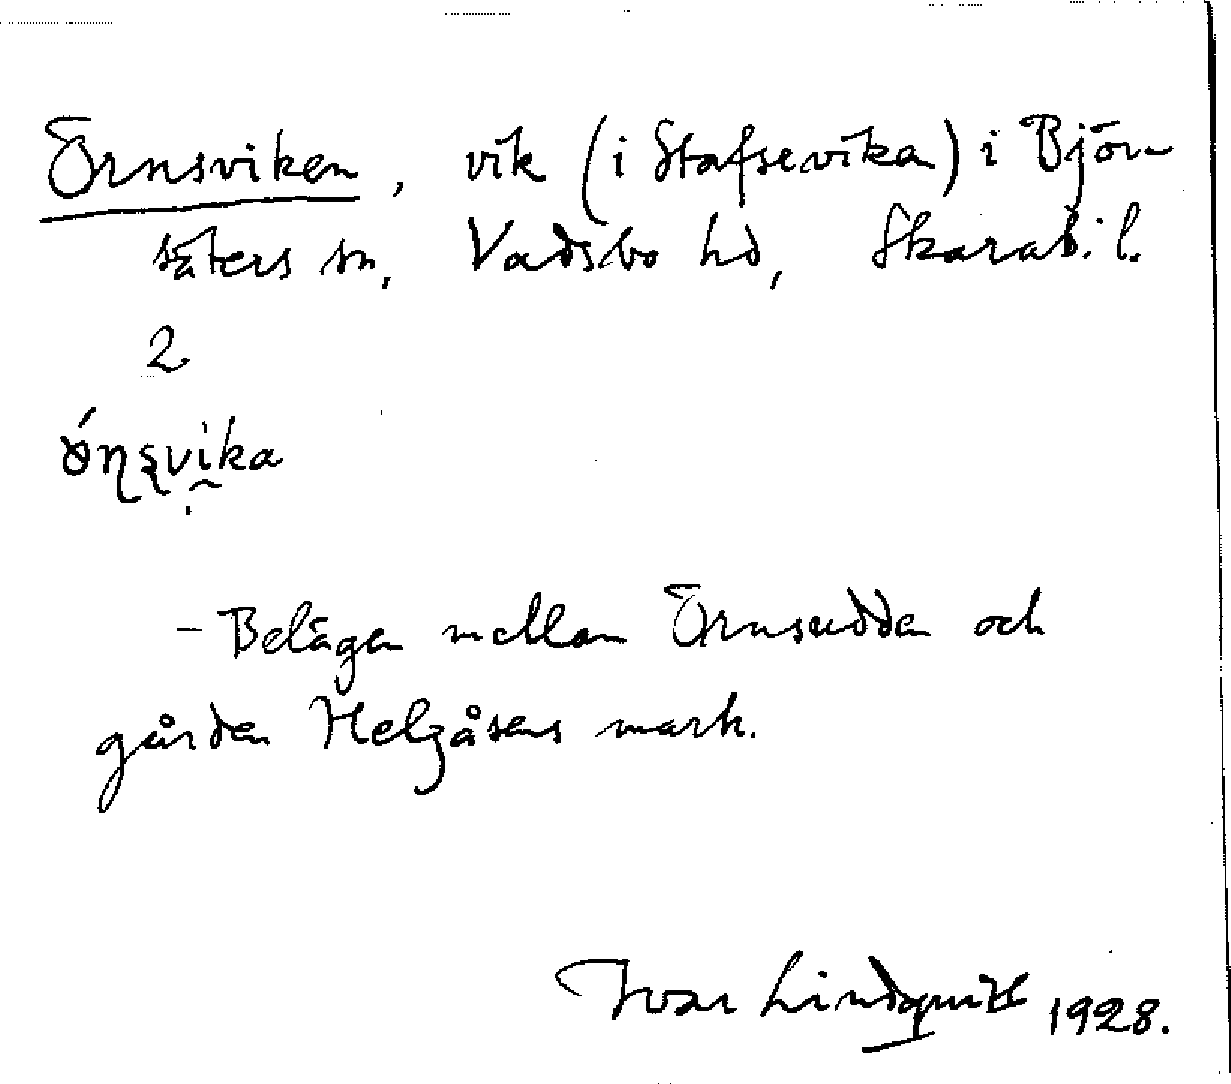 Örnsviken, vik (i Stafsevika) i Björ-
säters sn, Vadsbo hd, Skarab. l.
2
ǿn̥svika
– Belägen mellan Örnsudden och
gården Helgåsens mark.
Ivar Lindquist 1928.